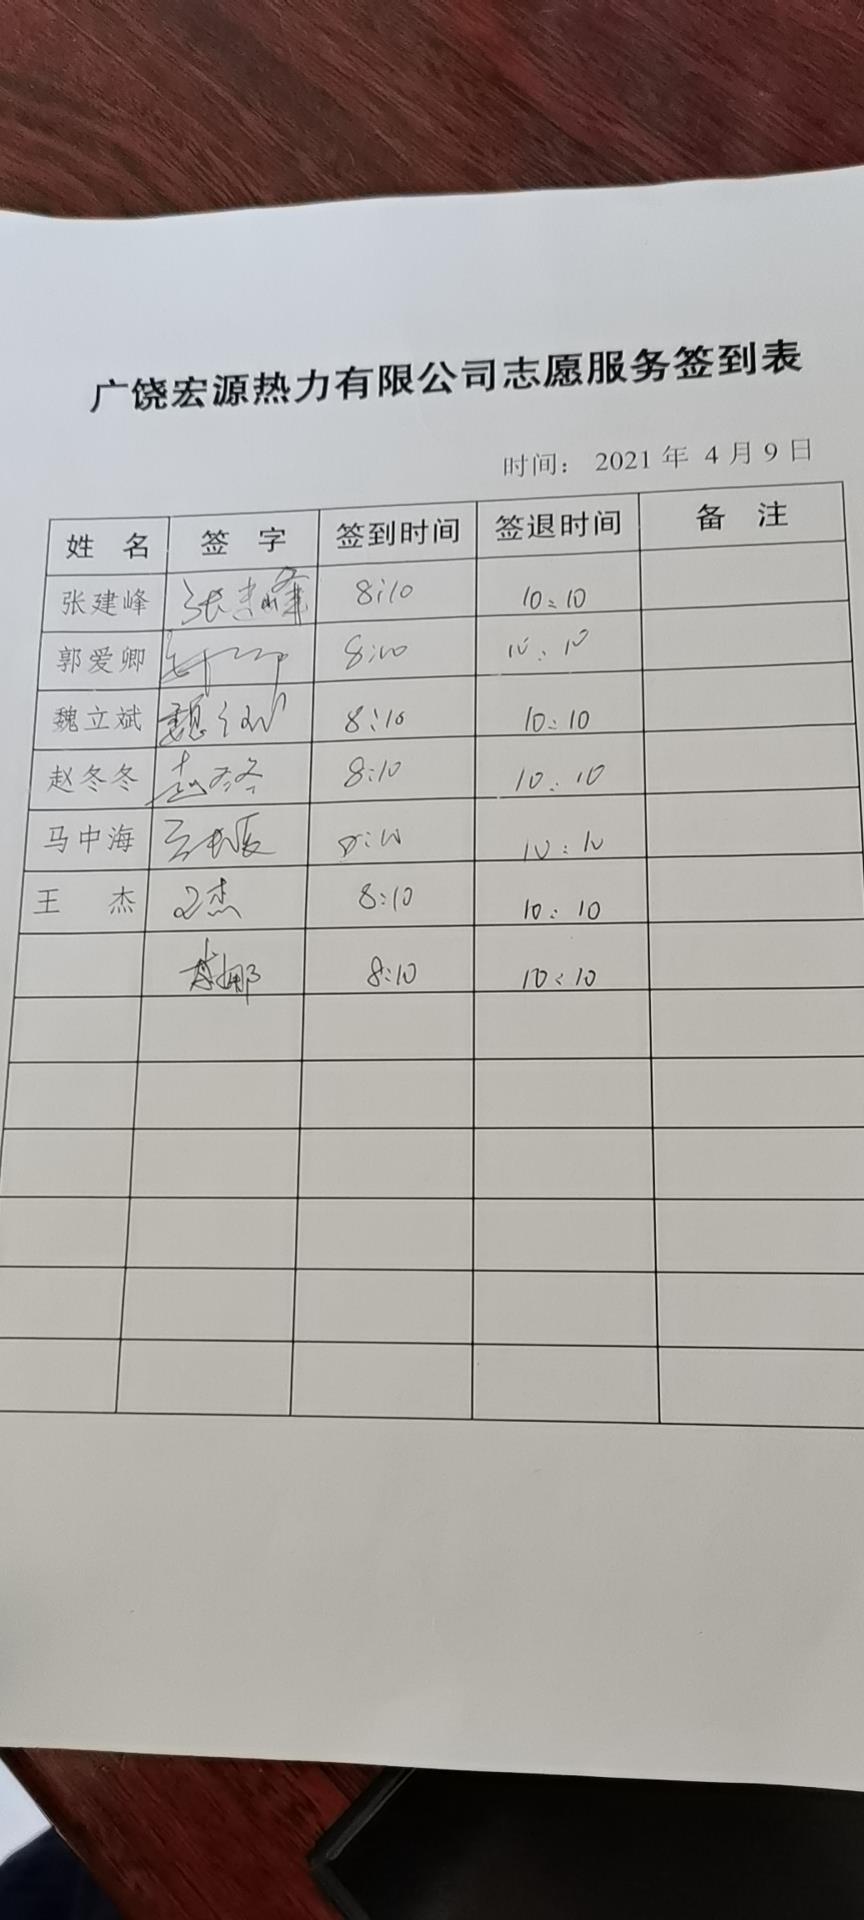 广饶宏源热力有限公司志愿服务签到表
时间： 2021 年 4 月 9 日
姓 名 签 字 签到时间 签退时间 备 注
张建峰 张建峰 8:10 10:10
郭爱卿 8:10 10:10
魏立斌 魏立斌 8:10 10:10
赵冬冬 赵冬冬 8:10 10:10
马中海 8:10 10:10
王 杰 王杰 8:10 10:10
8:10 10:10